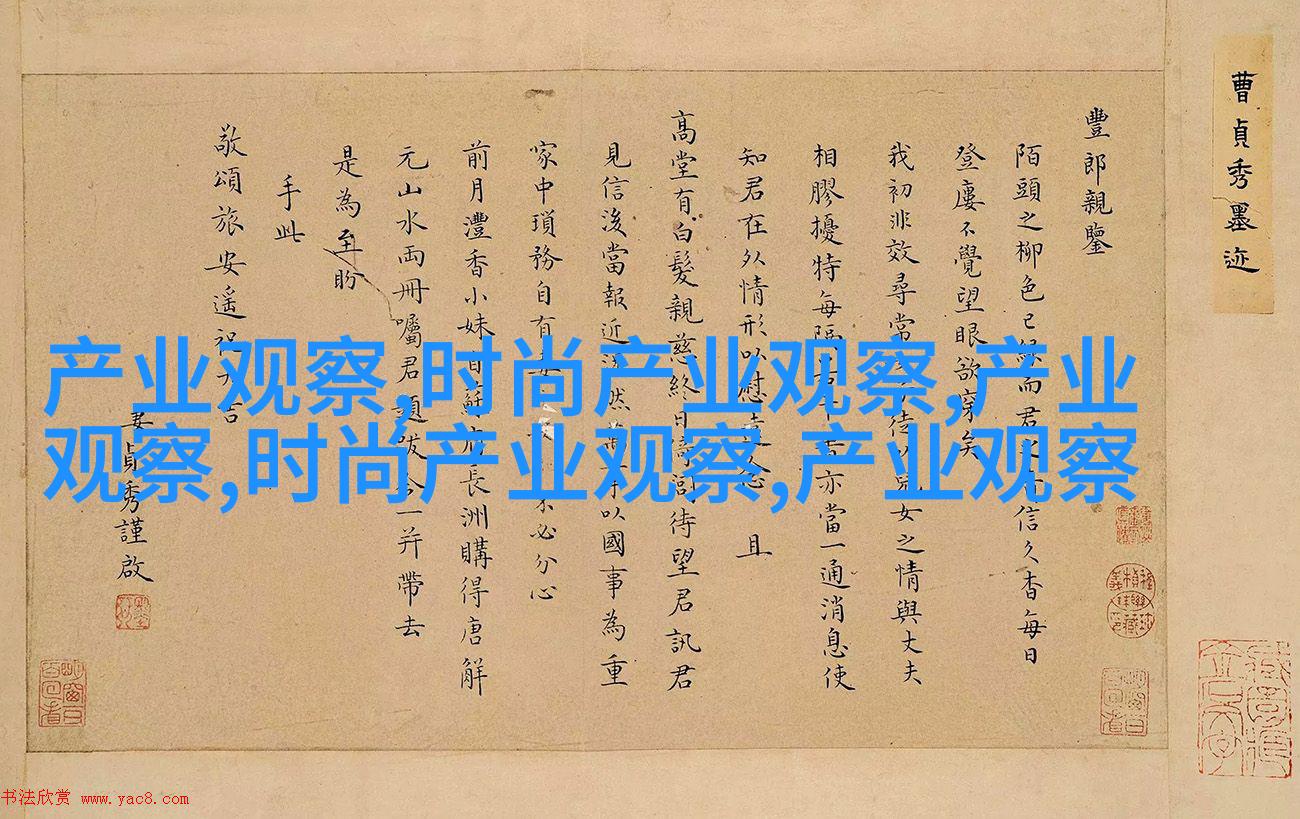 曹貞秀墨迹
豐郎親鑒
陌頭之柳色已綠而君之信久杳每日
登廔不覺望眼欲穿矣
我初非效尋常女之情與丈夫
相膠擾特每隔亦當一通消息使
知君在外情形以慰 且
高堂有白髮親慈終日待望君訊君
見信後當報近然以國事為重
家中瑣務自有必分心
前月灃香小妹自蘇長洲購得唐解
元山水兩冊囑君題跋今一并帶去
是為至盼
手此
敬頌旅安遙祝吉
妻貞秀謹啟
产业观察,时尚产业观察,产业
观察,时尚产业观察,产业观察
书法欣赏 www.yac8.com